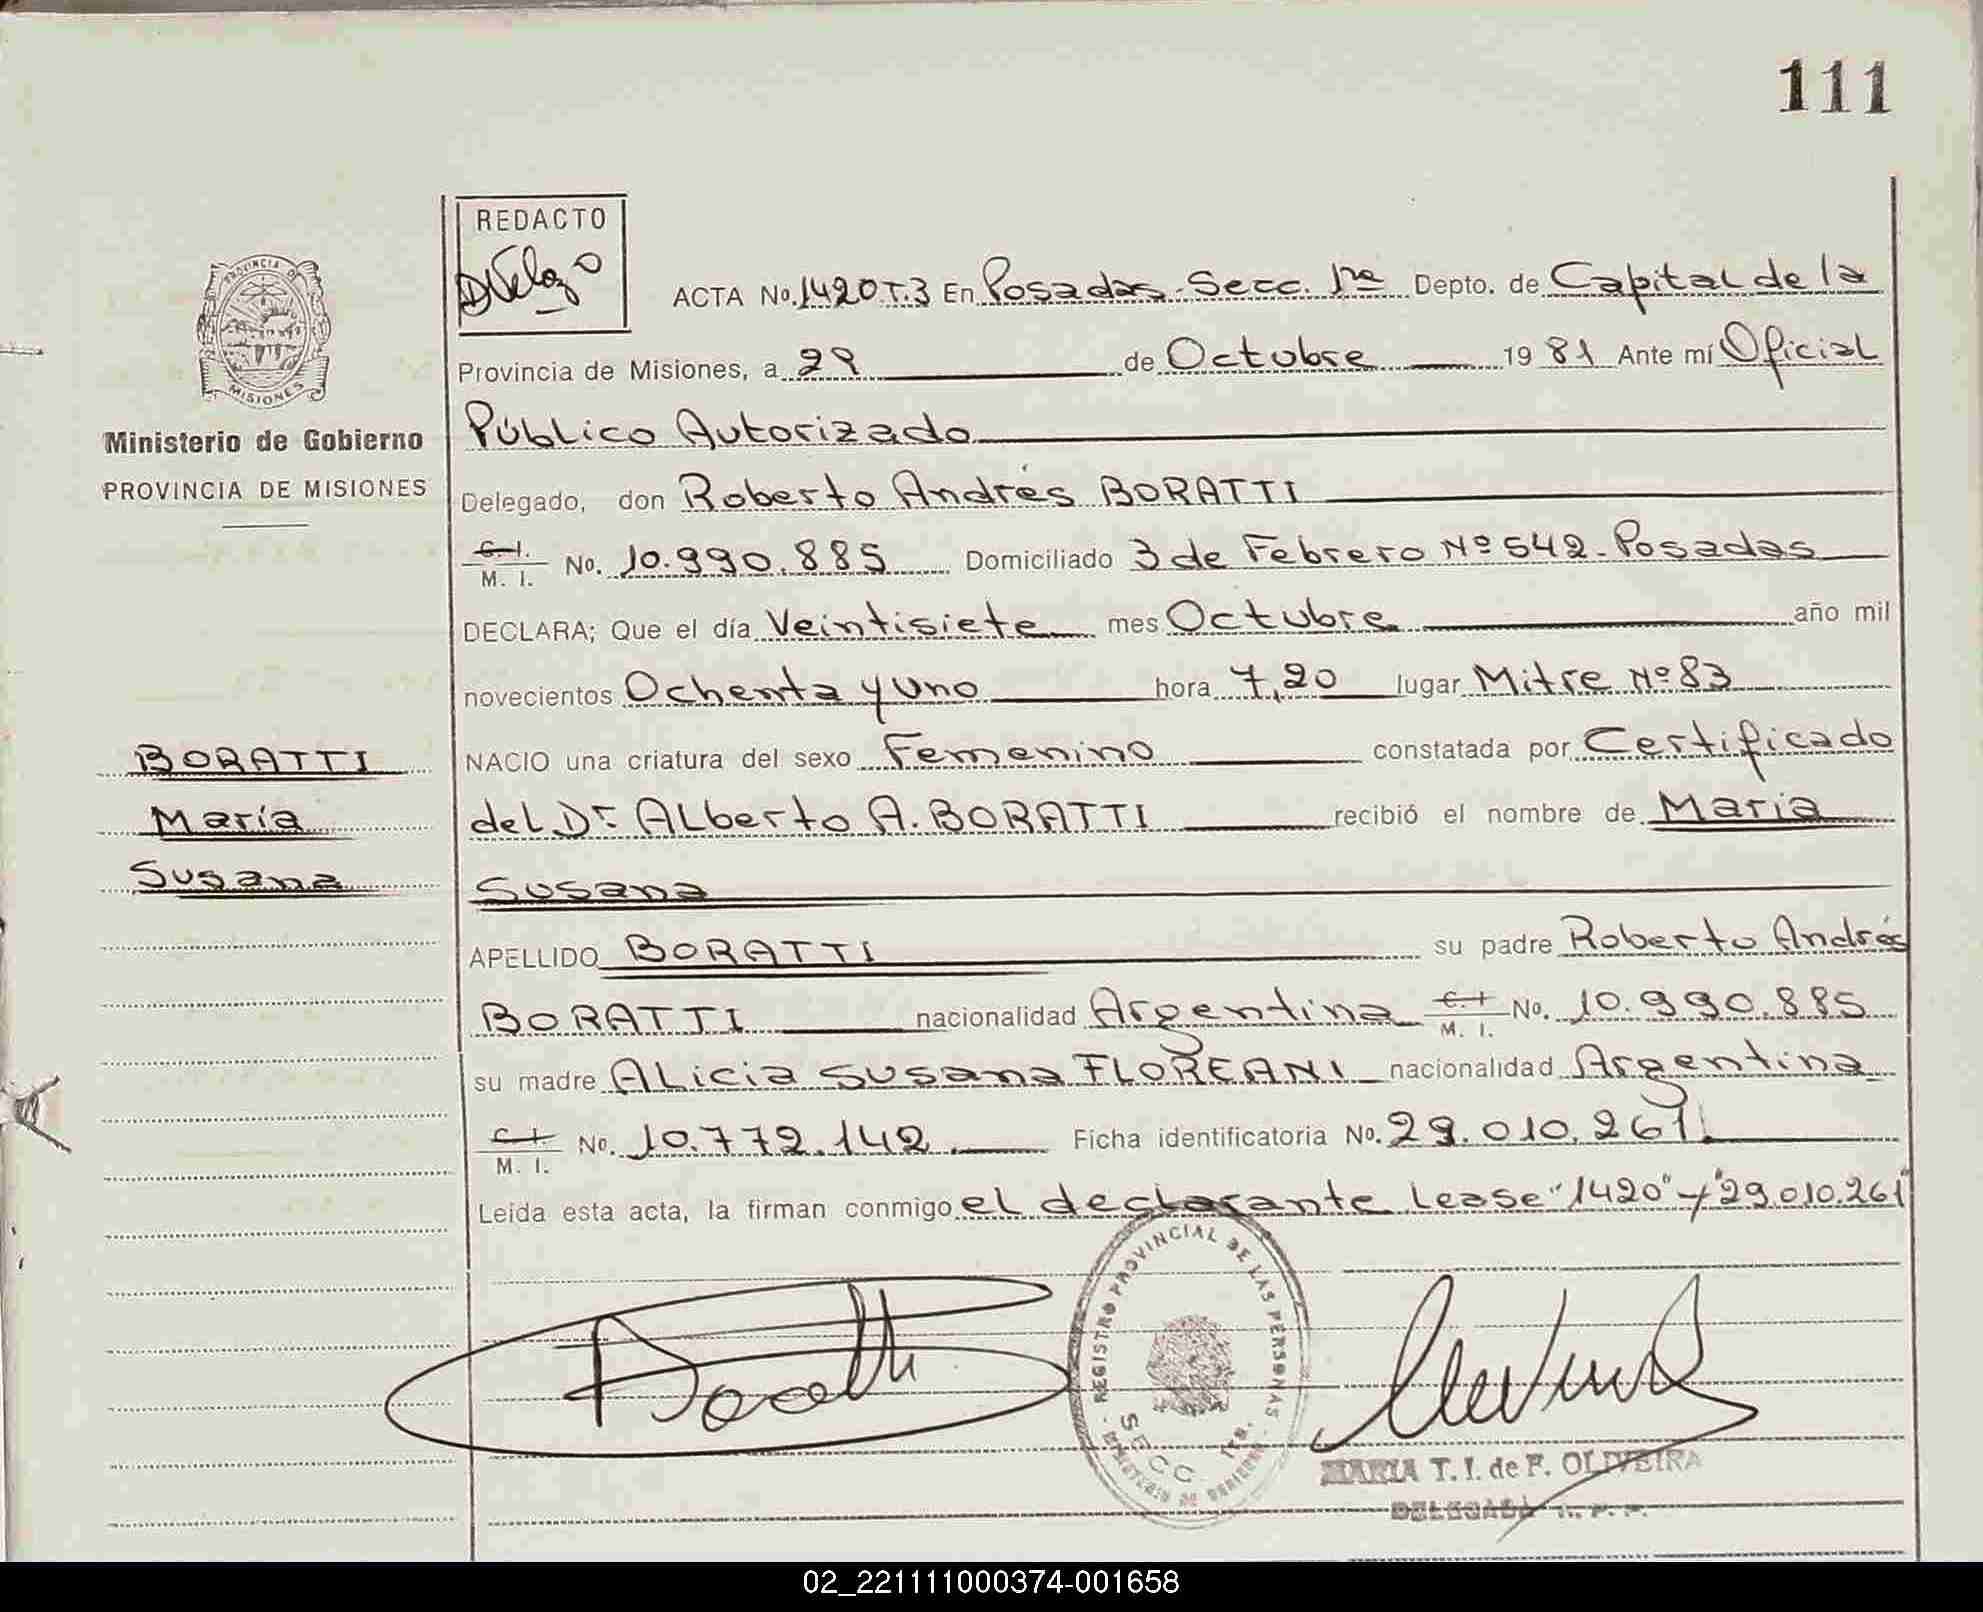 111
REDACTO
ACTA No. 1420 T.3 En Posadas - Secc. 1ra Depto. de Capital de la
PROVINCIA DE
MISIONES
Provincia de Misiones, a 29 de Octubre 1981 Ante mí Oficial
Ministerio de Gobierno
PROVINCIA DE MISIONES
Público Autorizado
Delegado, don Roberto Andrés BORATTI
C. I. M. I. No. 10.990.885 Domiciliado 3 de Febrero Nº 542 - Posadas
DECLARA; Que el día Veintisiete mes Octubre año mil
novecientos Ochenta y Uno hora 7,20 lugar Mitre Nº 83
BORATTI
María
Susana
NACIO una criatura del sexo Femenino constatada por Certificado
del Dr. Alberto A. BORATTI recibió el nombre de María
Susana
APELLIDO BORATTI su padre Roberto Andrés
BORATTI nacionalidad Argentina C. I. M. I. No. 10.990.885
su madre Alicia Susana FLOREANI nacionalidad Argentina
C. I. M. I. No. 10.772.142 Ficha identificatoria No. 29.010.261
Leída esta acta, la firman conmigo el declarante Lease "1420" y "29.010.261"
REGISTRO PROVINCIAL DE LAS PERSONAS
SECC. 1ra.
MARIA T. I. de F. OLIVEIRA
DELEGADA R. P. P.
02_221111000374-001658